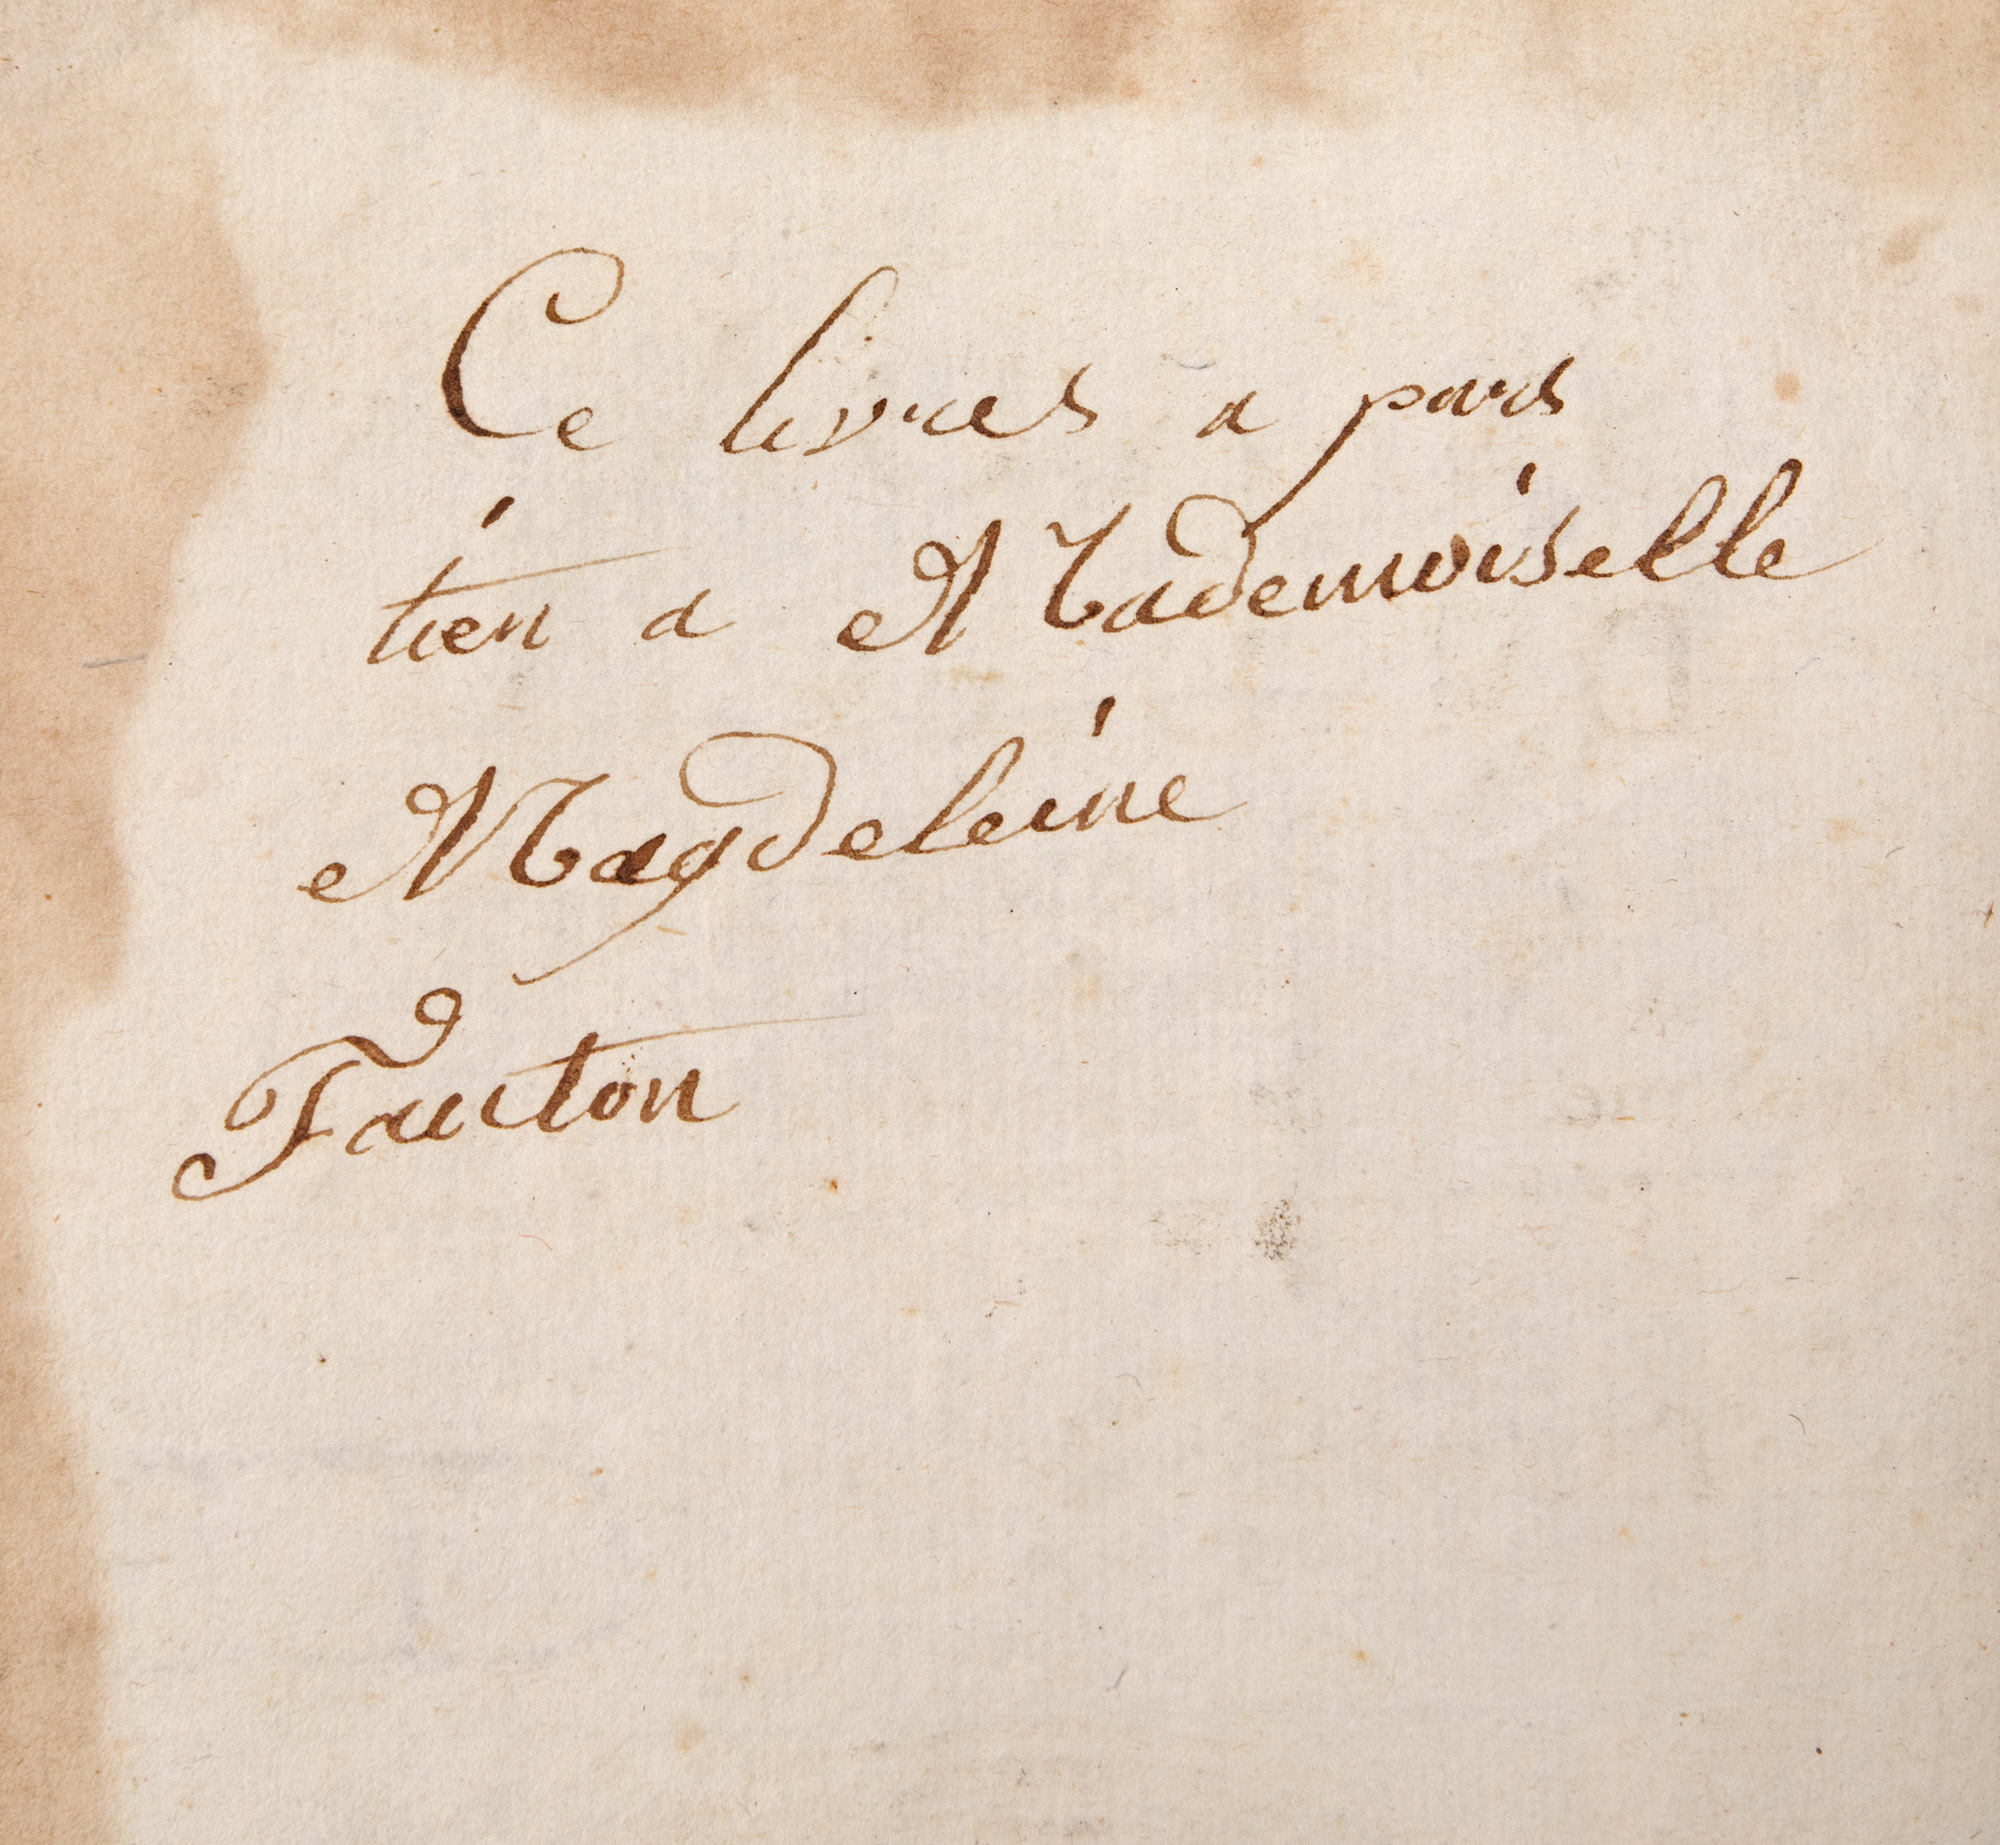 Ce livres a pars
tien a Mademoiselle
Magdeleine
Fauton